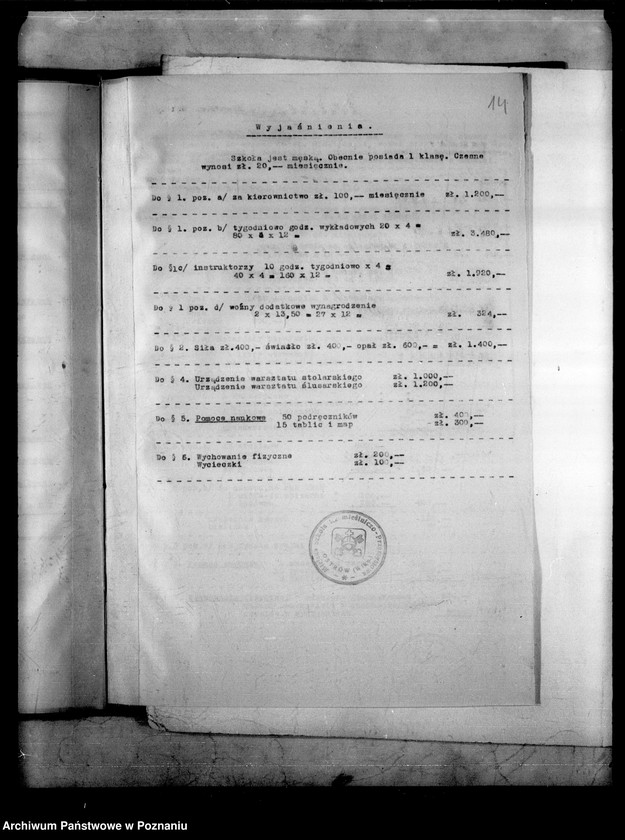 14
Wyjaśnienia.
Szkoła jest męską. Obecnie posiada 1 klasę. Czesne
wynosi zł. 20,-- miesięcznie.
Do § 1. poz. a/ za kierownictwo zł. 100,-- miesięcznie zł. 1.200,--
Do § 1. poz. b/ tygodniowo godz. wykładowych 20 x 4 =
80 x 4 x 12 = zł. 3.480,--
Do §1c/ instruktorzy 10 godz. tygodniowo x 4 =
40 x 4 = 160 x 12 = zł. 1.920,--
Do § 1 poz. d/ woźny dodatkowe wynagrodzenie
2 x 13,50 = 27 x 12 = zł. 324,--
Do § 2. Siła zł.400,- światło zł. 400,- opał zł. 600,- = zł. 1.400,--
Do § 4. Urządzenie warsztatu stolarskiego zł. 1.000,--
Urządzenie warsztatu ślusarskiego zł. 1.200,--
Do § 5. Pomoce naukowe 50 podręczników zł. 400,--
15 tablic i map zł. 300,--
Do § 6. Wychowanie fizyczne zł. 200,--
Wycieczki zł. 100,--
Archiwum Państwowe w Poznaniu